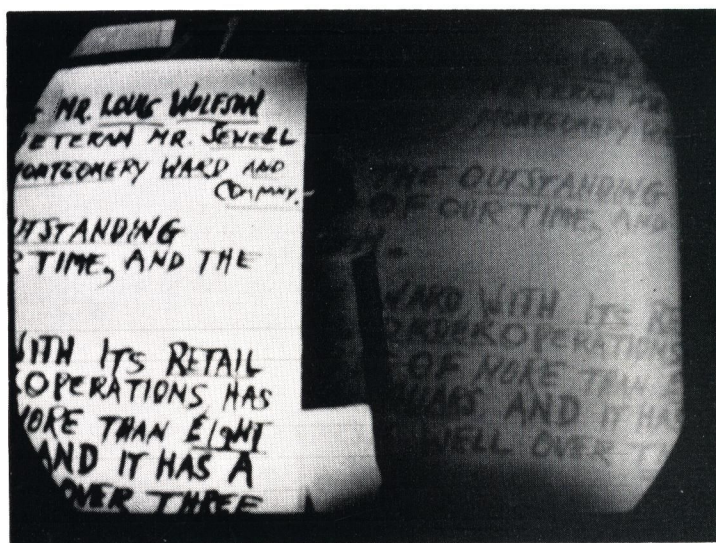 MR. LOUIS WOLFSON
VETERAN MR. SEWELL
MONTGOMERY WARD AND
COMPANY.
OUTSTANDING
TIME, AND THE
WITH ITS RETAIL
OPERATIONS HAS
MORE THAN EIGHT
AND IT HAS A
OVER THREE
LOUIS
VETERAN MR.
MONTGOMERY
THE OUTSTANDING
OF OUR TIME, AND
WARD WITH ITS RE
ORDER OPERATIONS
OF MORE THAN E
AND IT HAS
WELL OVER T